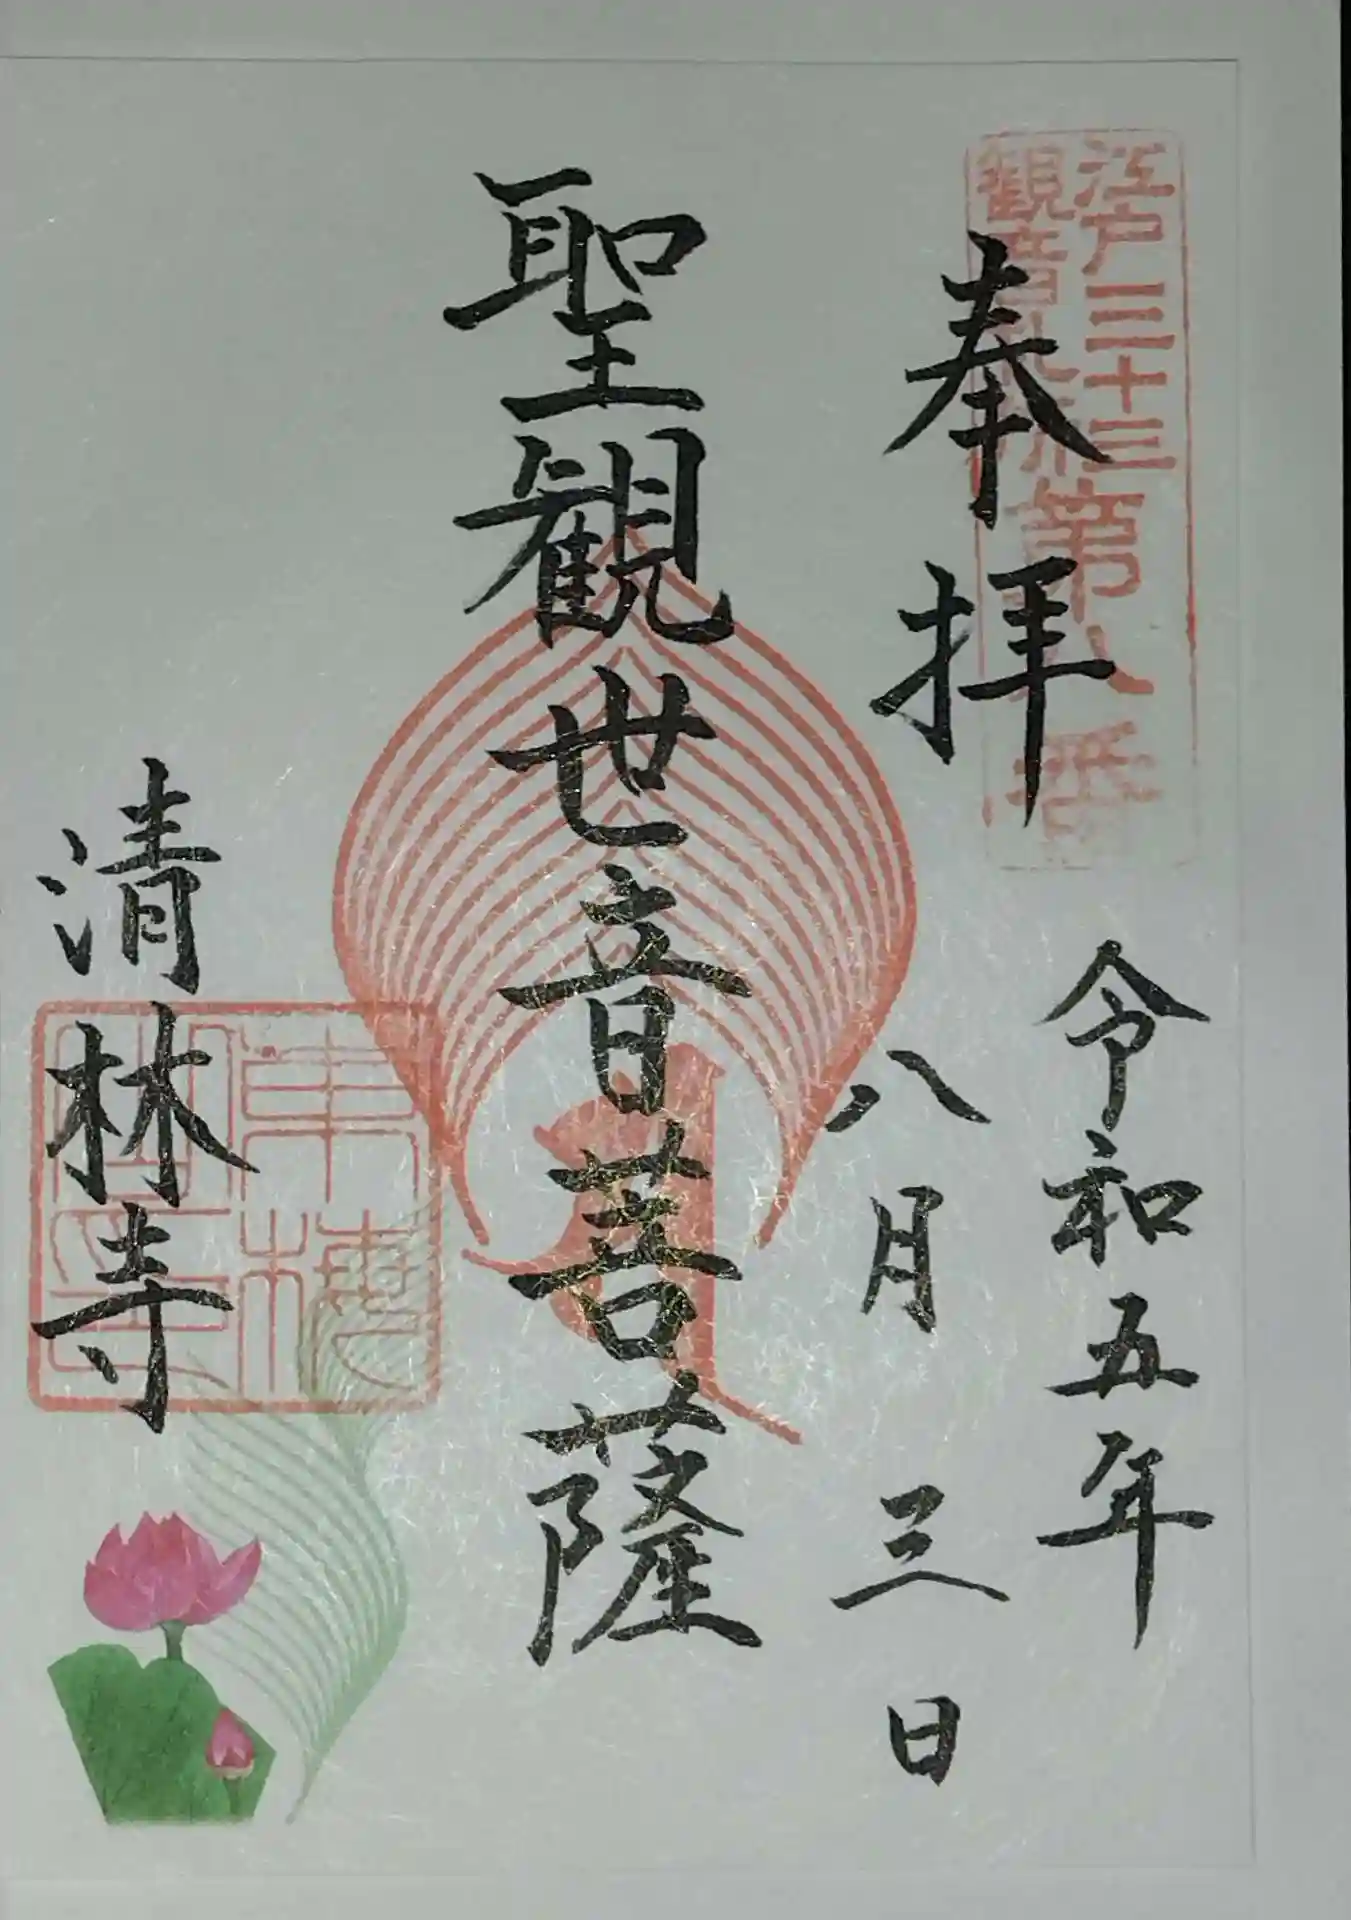 江戸三十三
観音札所
第八番
奉拝
令和五年
八月三日
聖観世音菩薩
清林寺
東梅